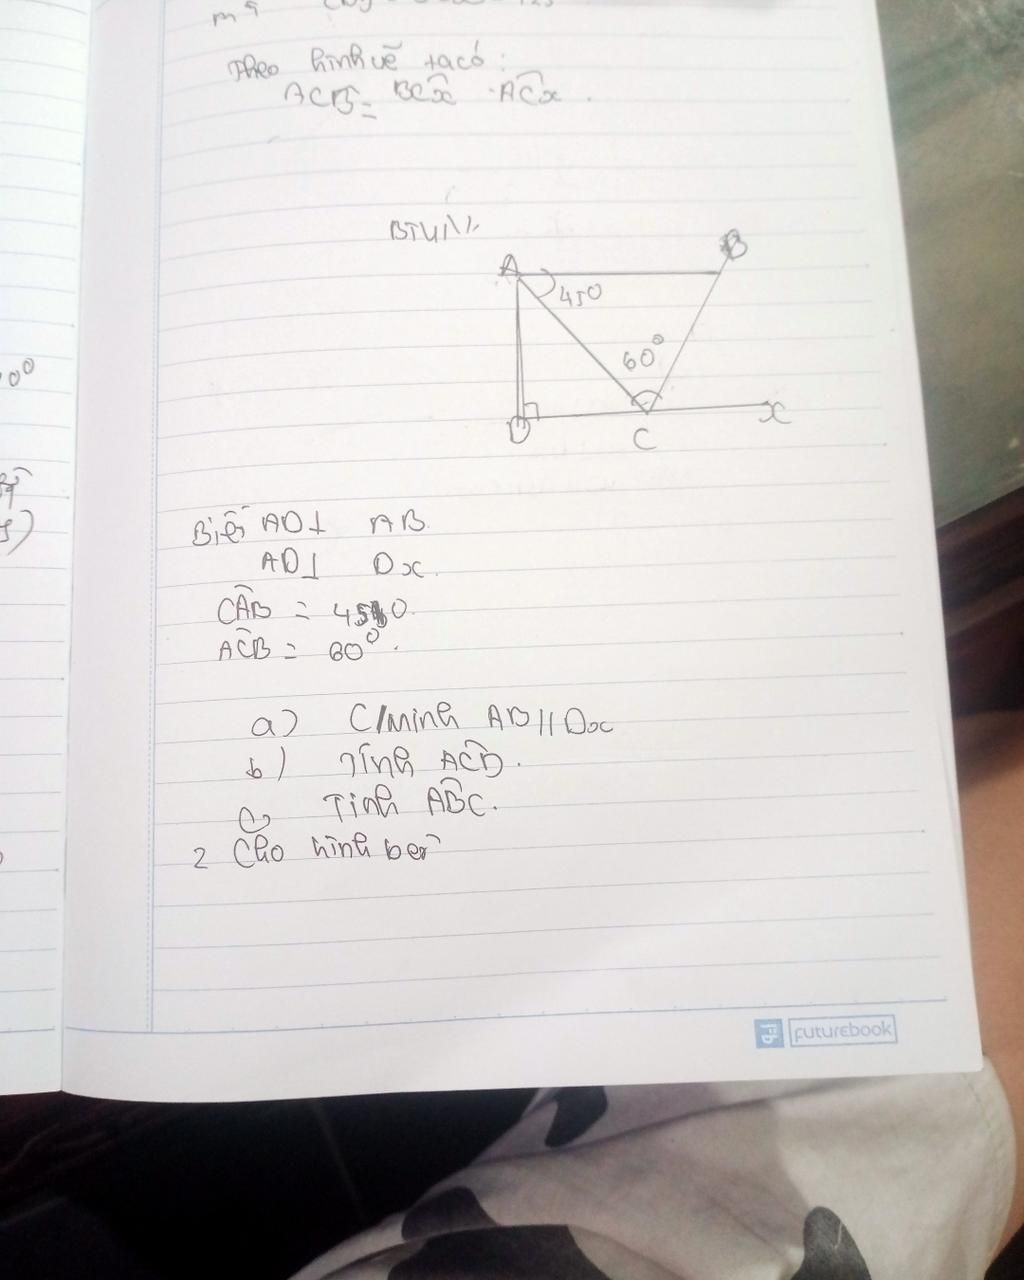 Theo hình vẽ ta có:
ACB = BCx - ACx.
BTVN
A
B
450
60°
D
C
x
00
Biết AD⊥ AB.
AD⊥ Dx.
CAB = 450.
ACB = 60°.
a) C/minh AB // Dx
b) Tính ACD.
c, Tính ABC.
2 Cho hình bên
futurebook